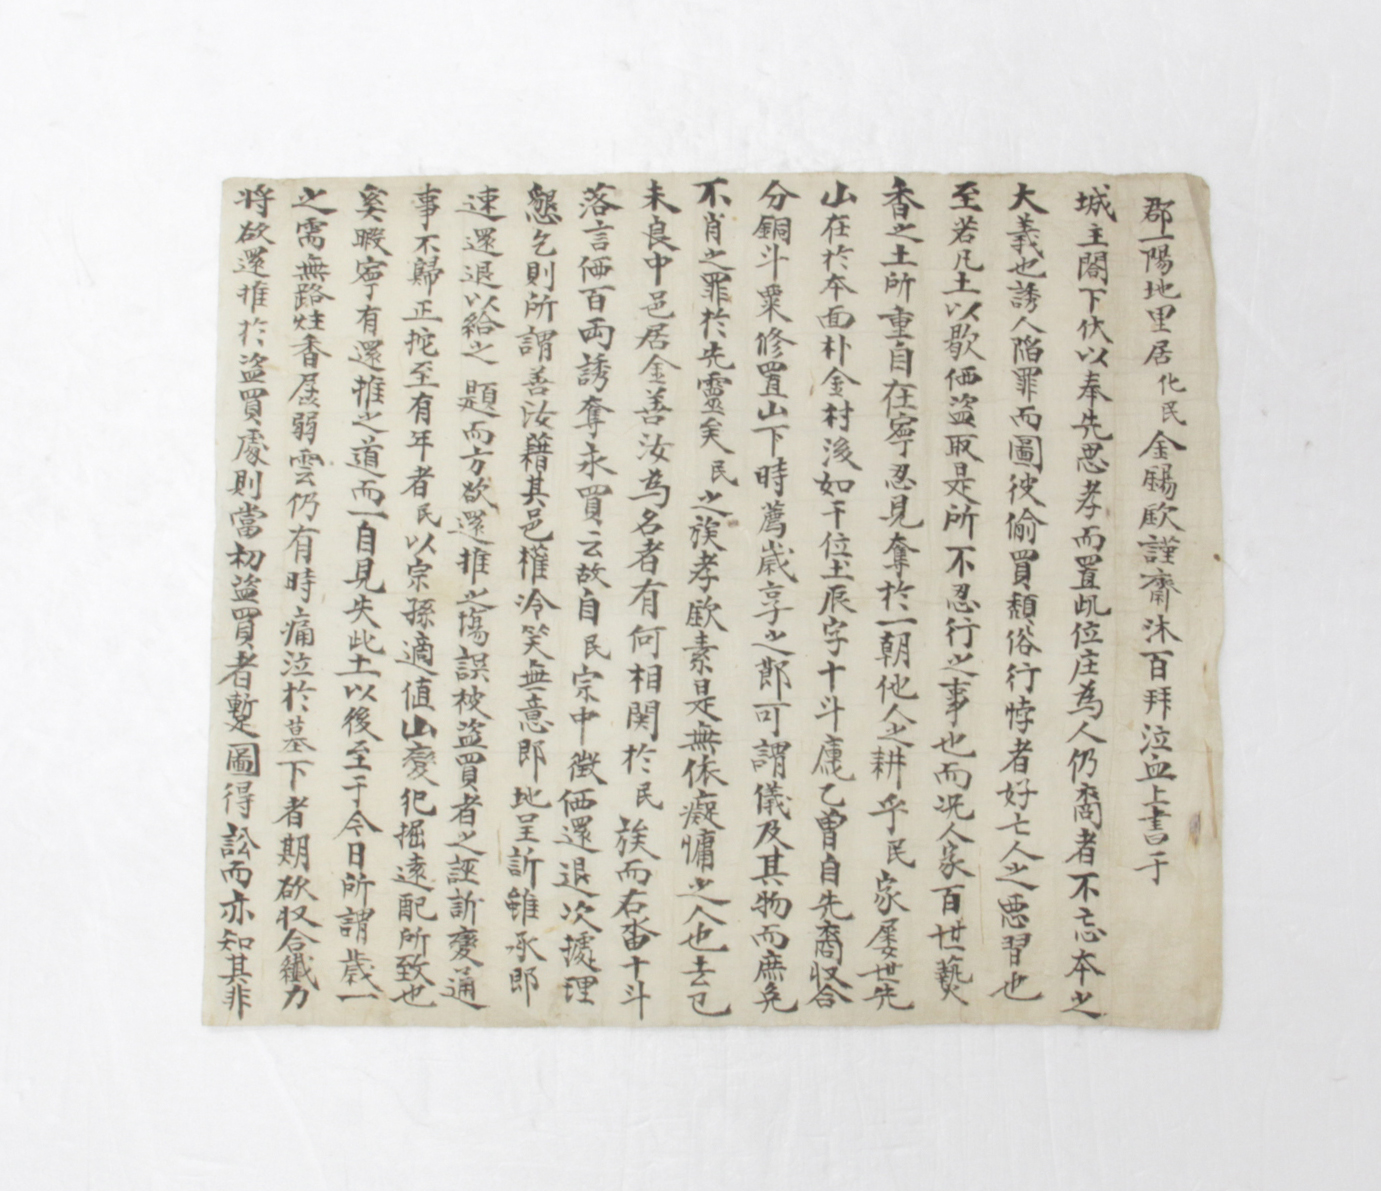 郡一陽地里居化民金錫歐謹齋沐百拜泣血上書于
城主閤下伏以奉先思孝而置此位庄為人仍裔者不忘本之
大義也誘人陷罪而圖彼偷買頹俗行悖者好亡人之惡習也
至若凡土以歇価盜取是所不忍行之事也而况人家百世藝
香之土所重自在寧忍見奪於一朝他人之耕乎民家屢世先
山在於本面朴金村後如干位土辰字十斗庹乙曾自先裔収合
分銅斗粟修置山下時薦歲享之節可謂儀及其物而庶免
不肖之罪於先靈矣民之族孝歐素是無依癡慵之人也去已
未良中邑居金善汝為名者有何相関於民族而右畓十斗
落言価百両誘奪永買云故自民宗中徵価還退次據理
懇乞則所謂善汝藉其邑權冷笑無意郎地呈訴雖承郎
速還退以給之題而方欲還推之際誤被盜買者之誣訴變通
事不歸正拕至有年者民以宗孫適值山變犯掘遠配所致也
奚暇寧有還推之道而一自見失此土以後至于今日所謂歲一
之需無路炷香孱弱雲仍有時痛泣於墓下者期欲収合纖力
將欲還推於盜買處則當初盜買者暫圖得訟而亦知其非